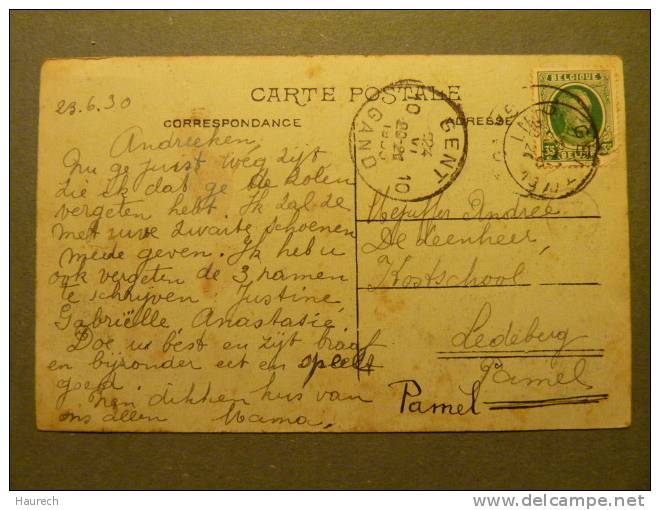 BELGIQUE
35
23.6.30
CARTE POSTALE
CORRESPONDANCE
ADRESSE
GENT
10
24
VI
1930
10
GAND
Andreeken,
Nu ge juist weg zijt
zie ik dat ge de kolen
vergeten hebt. Ik zal ze
met uwe zwarte schoenen
mede geven. Ik heb u
ook vergeten de 3 namen
te schrijven. Justine,
Gabriëlle Anastasie.
Doe us best en zijt braaf
en bijzonder eet en speelt
goed.
nen dikken kus van
ons allen Mama,
Mejuffer Andrée
De Leenheer,
Kostschool
Ledeberg
Pamel
Pamel
Haurech
www.delcampe.net